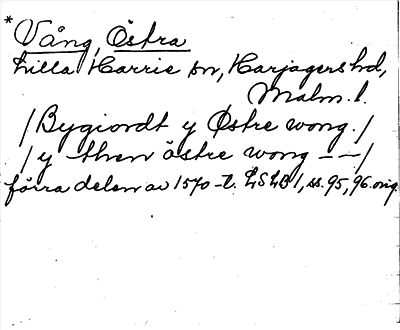 * Vång, Östra
Lilla Harrie sn, Harjagers hd,
Malm. l.
/Bygiordt y Østre wong./
/y then östre wong – –/
förra delen av 1570-t. LSLB 1, ss. 95, 96. orig.